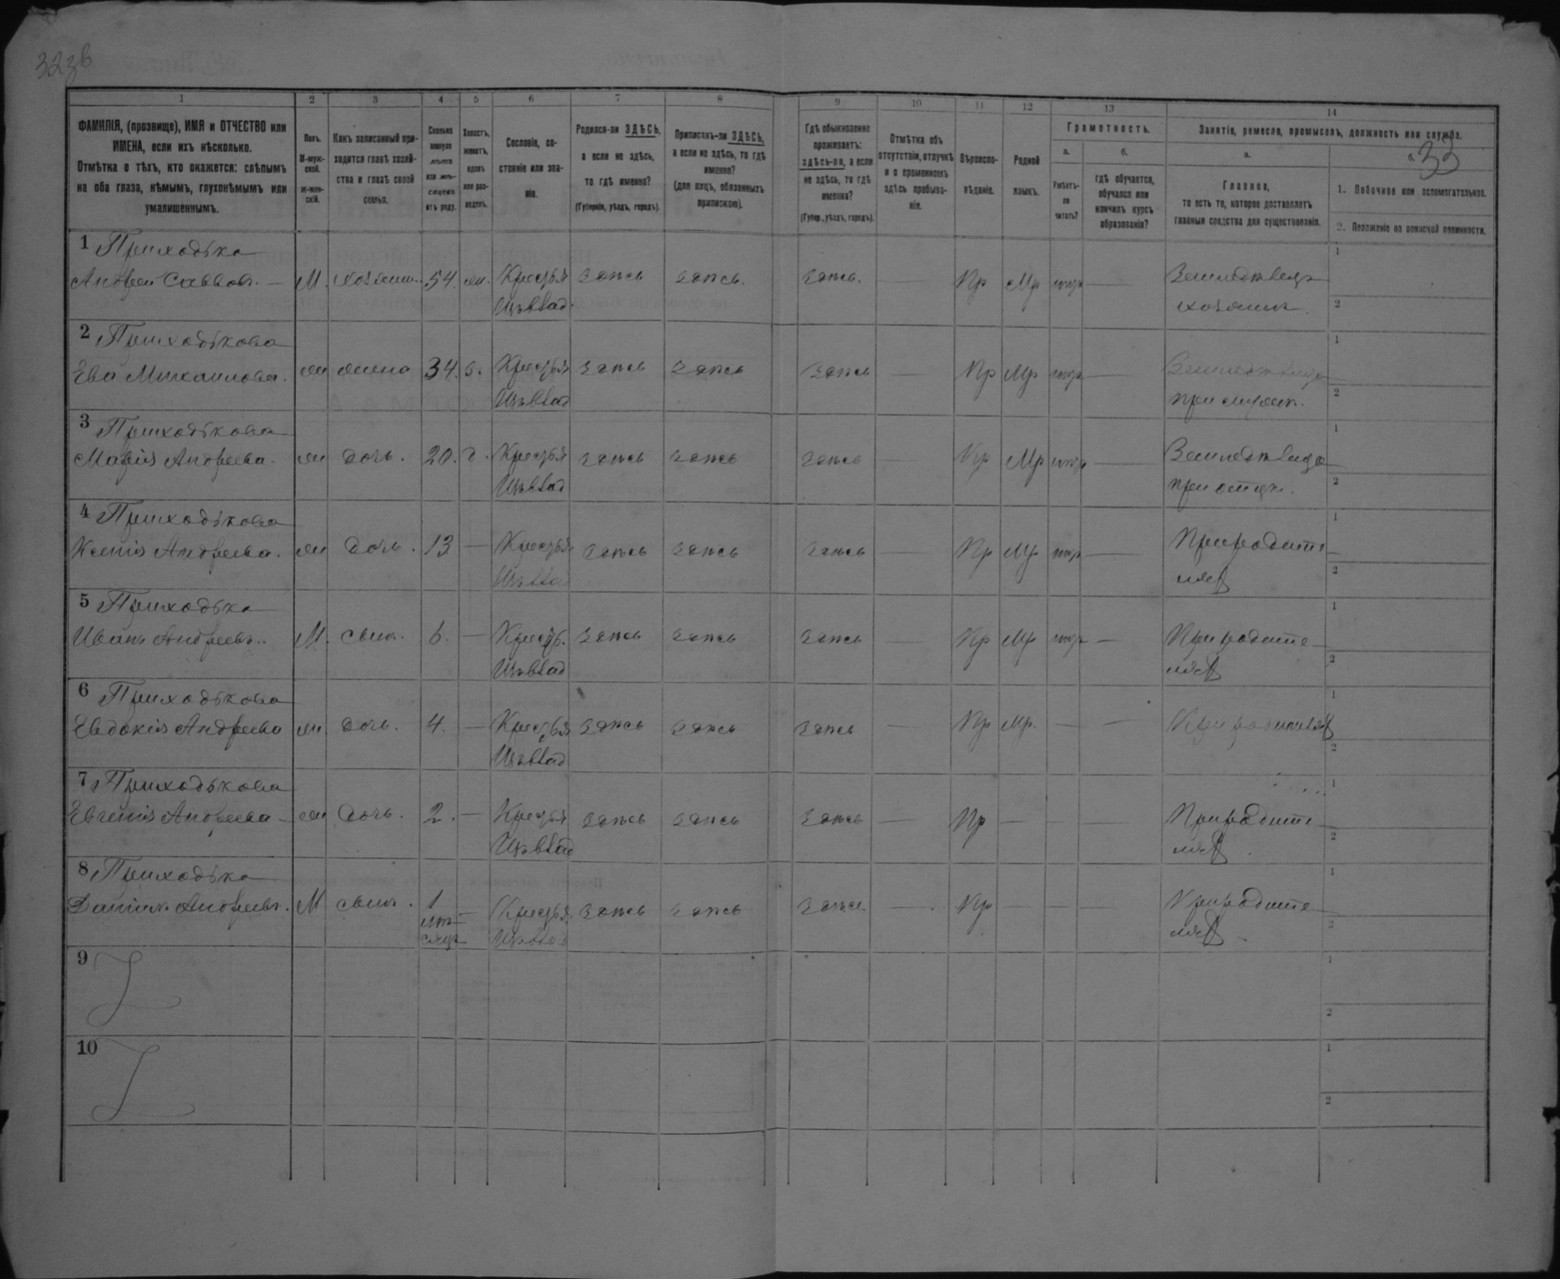 1
2
3
4
5
6
7
8
9
10
11
12
13
14
ФАМИЛІЯ, (прозвище), ИМЯ и ОТЧЕСТВО или
ИМЕНА, если ихъ нѣсколько.
Отмѣтка о тѣхъ, кто окажется: слѣпымъ
на оба глаза, нѣмымъ, глухонѣмымъ или
умалишеннымъ.
Полъ.
М-муж-
ской.
Ж-жен-
скій.
Какъ записанный при-
ходится главѣ хозяй-
ства и главѣ своей
семьи.
Сколько
минуло
лѣтъ
или мѣ-
сяцевъ
отъ роду.
Холостъ,
женатъ,
вдовъ
или раз-
веденъ.
Сословіе, со-
стояніе или зва-
ніе.
Родился-ли ЗДѢСЬ,
а если не здѣсь,
то гдѣ именно?
(Губернія, уѣздъ, городъ).
Приписанъ-ли ЗДѢСЬ,
а если не здѣсь, то гдѣ
именно?
(для лицъ, обязанныхъ
припискою).
Гдѣ обыкновенно
проживаетъ:
здѣсь-ли, а если
не здѣсь, то гдѣ
именно?
(Губер., уѣздъ, городъ).
Отмѣтка объ
отсутствіи, отлучкѣ
и о временномъ
здѣсь пребыва-
ніи.
Вѣроиспо-
вѣданіе.
Родной
языкъ.
Грамотность.
а.
Умѣетъ-
ли
читать?
б.
гдѣ обучается,
обучался или
кончилъ курсъ
образованія?
Занятіе, ремесло, промыселъ, должность или служба.
33
а.
Главное,
то есть то, которое доставляетъ
главныя средства для существованія.
1. Побочное или вспомогательное.
2. Положеніе по воинской повинности.
1 Приходька
Андрей Саввовъ. — М. хозяинъ. 54. жн. Крестья здѣсь здѣсь. здѣсь. — Пр Мр нѣтъ — Земледѣлецъ
Изъ влад. хозяинъ.
2 Приходькова
Ева Михаилова. жн жена 34. з. Крестья здѣсь здѣсь здѣсь — Пр Мр нѣтъ — Земледѣлица
Изъ влад при мужѣ.
3 Приходькова
Марія Андреева. жн дочь. 20. д. Крестья здѣсь здѣсь здѣсь — Пр Мр нѣтъ — Земледѣлица
Изъ влад при отцѣ.
4 Приходькова
Ксенія Андреева. жн дочь. 13 — Крестья здѣсь здѣсь здѣсь — Пр Мр нѣтъ — При родите
Изъ влад ляхъ
5 Приходька
Иванъ Андреевъ. М. сынъ. 6. — Крестья. здѣсь здѣсь здѣсь — Пр Мр нѣтъ — При родите
Изъ влад ляхъ
6 Приходькова
Евдокія Андреева жн. дочь. 4. — Крестья здѣсь здѣсь здѣсь — Пр Мр. — — При родителяхъ
Изъ влад
7 Приходькова
Евгенія Андреева — жн дочь. 2. — Крестья здѣсь здѣсь здѣсь — Пр — — — При родите
Изъ влад ляхъ.
8 Приходька
Даніилъ Андреевъ. М сынъ. 1 — Крестья здѣсь здѣсь здѣсь. — Пр — — — При родите
Изъ влад ляхъ
9
10